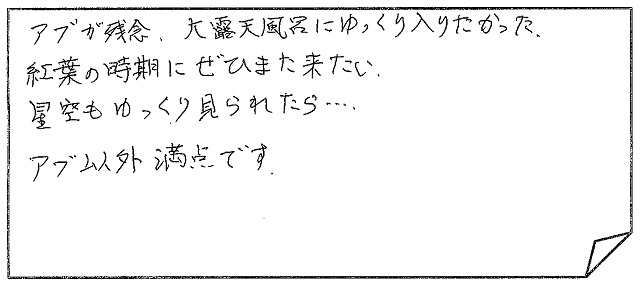 アブが残念、大露天風呂にゆっくり入りたかった.
紅葉の時期にぜひまた来たい.
星空もゆっくり見られたら….
アブ以外満点です.